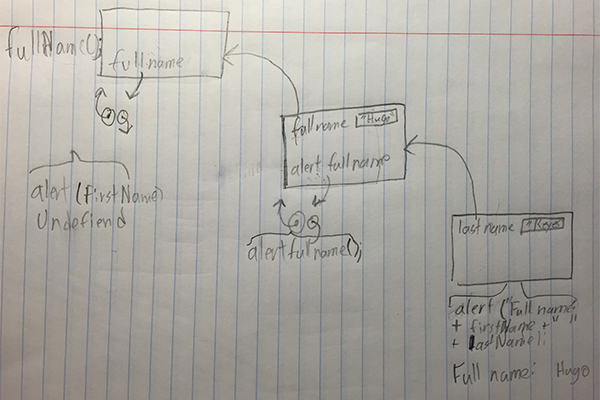 fullName();
fullname
alert (FirstName)
Undefiend
fullname "Hugo"
alert fullname
alertfullname();
last name "Reyes"
alert ("Full name
+ firstName + " "
+ lastName);
Full name: Hugo